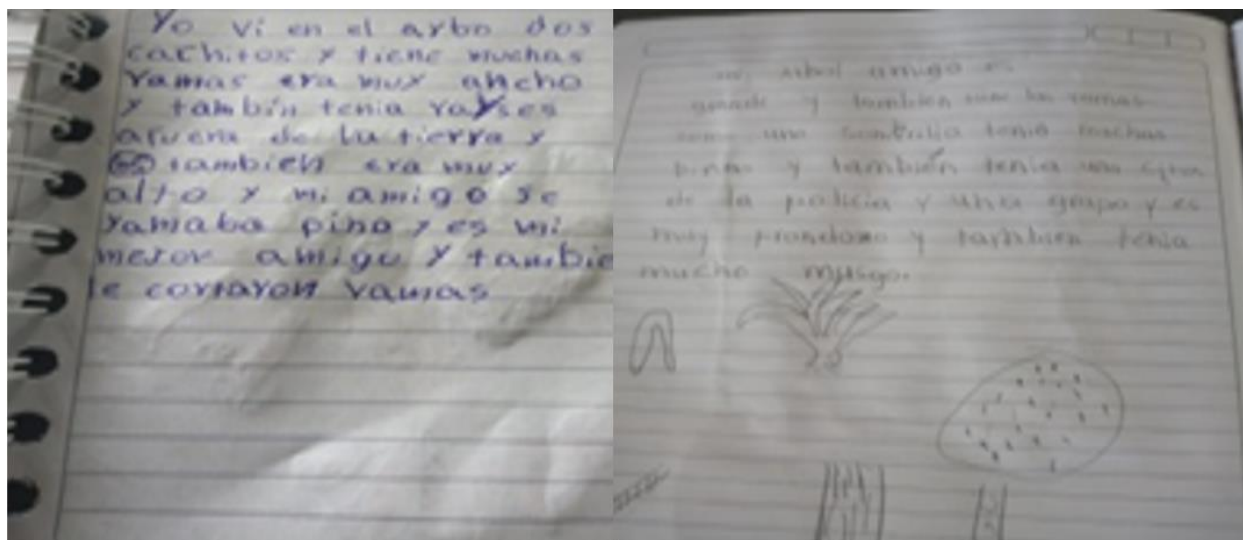 Yo vi en el arbo dos
cachitos y tiene muchas
ramas era muy ancho
y tambin tenia rayses
afuera de la tierra y
tambien era muy
alto y mi amigo se
yamaba pino y es mi
mejor amigo y tambie
le cortaron ramas
mi arbol amigo es
grande y tambien las ramas
como una tenia muchas
y también tenia una
de la policia y una grapa y es
muy y tambien tenia
mucho musgo.